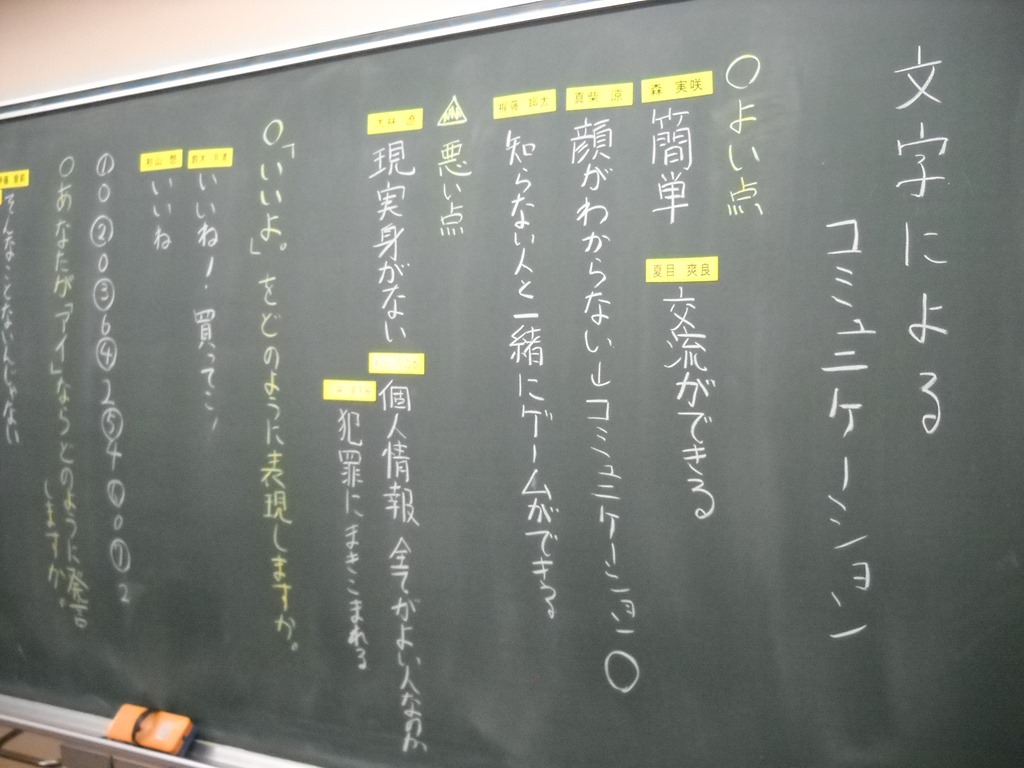 文字による
コミュニケーション
○よい点
森 実咲
簡単
夏目 爽良
交流ができる
真柴 涼
顔がわからない→コミュニケーション○
知らない人と一緒にゲームができる
悪い点
現実身がない
個人情報 全てがよい人なのか
犯罪にまきこまれる
○「いいよ。」をどのように表現しますか。
鈴木
いいね! 買ってこ!
杉山 悠
いいね
①0②0③6④2⑤4⑥0⑦2
○あなたが「アイ」ならどのように発言
しますか。
そんなことないんじゃない